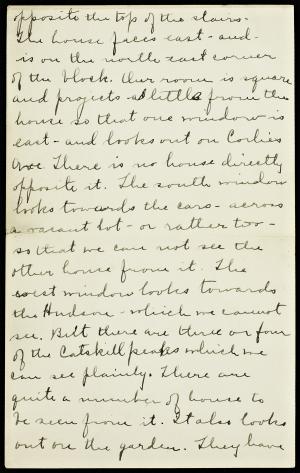 opposite the top of the stairs.
The house faces east - and -
is on the north east corner
of the block. Our room is square
and projects a little from the
house so that one window is
east - and looks out on Corlies
Ave. There is no house directly
opposite it. The south window
looks towards the cars - across
a vacant lot - or rather two -
so that we can not see the
other house from it. The
west window looks towards
the Hudson - which we cannot
see. But there are three or four
of the Catskill peaks which we
can see plainly. There are
quite a number of house to
be seen from it. It also looks
out on the garden. They have